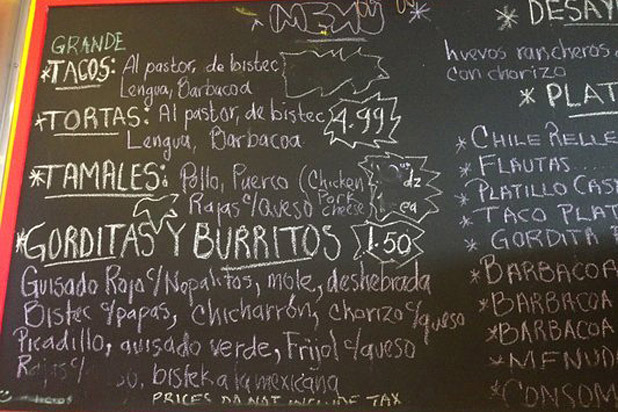 MENU
GRANDE
*TACOS: Al pastor, de bistec
Lengua, Barbacoa
*TORTAS: Al pastor, de bistec 4.99
Lengua, Barbacoa
*TAMALES: Pollo, Puerco (Chicken dz
Rajas c/queso Pork cheese ea
*GORDITAS Y BURRITOS 1.50
Guisado Rojo c/Nopalitos, mole, deshebrada
Bistec c/papas, chicharrón, chorizo c/queso
Picadillo, guisado verde, Frijol c/queso
Rajas c/ so, bistek a la mexicana
PRICES DO NOT INCLUDE TAX
DESAY
huevos rancheros
con chorizo
*PLAT
*CHILE RELLE
*FLAUTAS
*PLATILLO CAS
*TACO PLAT
*GORDITA
*BARBACOA
*BARBACOA
*BARBACOA
*MENUD
*CONSOM